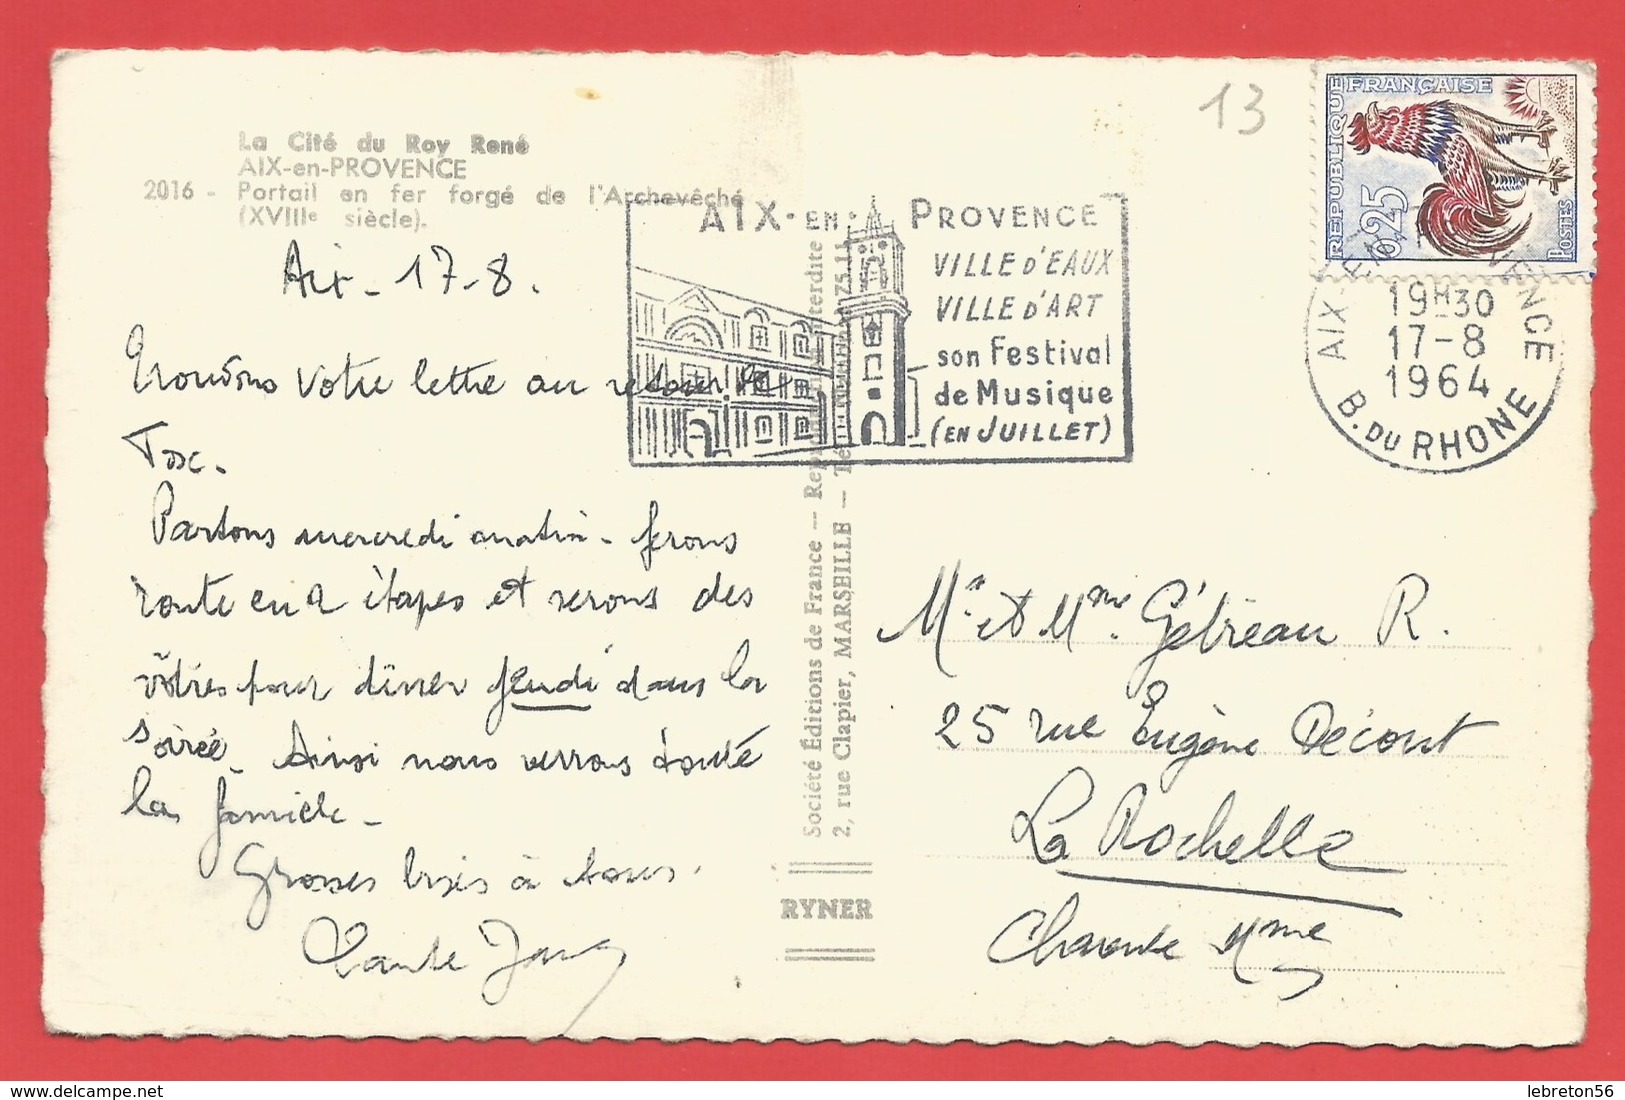 13
La Cité du Roy René
AIX-en-PROVENCE
2016 - Portail en fer forgé de l'Archevêché
(XVIIIe siècle).
Aix - 17-8.
Trouvons votre lettre au retour de
Tosc.
Partons mercredi matin - ferons
route en 2 étapes et serons des
vôtres pour dîner jeudi dans la
soirée. Ainsi nous verrons toute
la famille -
Grosses bises à tous.
Tante
AIX-EN-PROVENCE
VILLE D'EAUX
VILLE D'ART
son Festival
de Musique
(EN JUILLET)
RÉPUBLIQUE FRANÇAISE
0,25
POSTES
AIX-EN-PROVENCE
19H30
17-8
1964
B. DU RHONE
Société Éditions de France -- Reproduction interdite
2, rue Clapier, MARSEILLE -
RYNER
Mr et Mme Gébreau R.
25 rue Eugène Décout
La Rochelle
Charente Mme
lebreton56